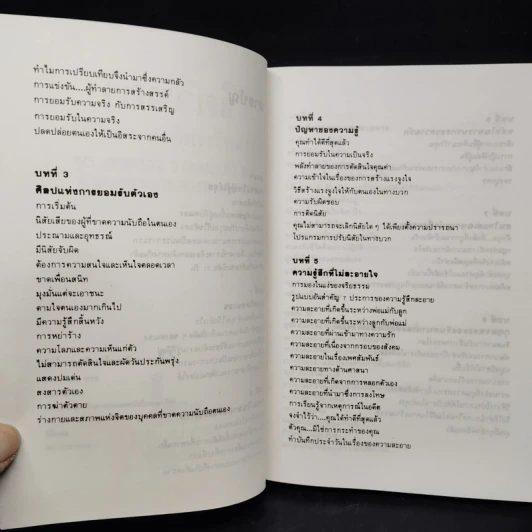 ทำไมการเปรียบเทียบจึงนำมาซึ่งความกลัว
การแข่งขัน....ผู้ทำลายการสร้างสรรค์
การยอมรับความจริง กับการสรรเสริญ
การยอมรับในความจริง
ปลดปล่อยตนเองให้เป็นอิสระจากคนอื่น
บทที่ 3
ศิลปแห่งการยอมรับตัวเอง
การเริ่มต้น
นิสัยเสียของผู้ที่ขาดความนับถือในตนเอง
ประณามและอุทธรณ์
มีนิสัยจับผิด
ต้องการความสนใจและเห็นใจตลอดเวลา
ขาดเพื่อนสนิท
มุ่งมั่นแต่จะเอาชนะ
ตามใจตนเองมากเกินไป
มีความรู้สึกสิ้นหวัง
การหย่าร้าง
ความโลภและความเห็นแก่ตัว
ไม่สามารถตัดสินใจและผัดวันประกันพรุ่ง
แสดงปมเด่น
สงสารตัวเอง
การฆ่าตัวตาย
ร่างกายและสภาพแห่งจิตของบุคคลที่ขาดความนับถือตนเอง
บทที่ 4
ปัญหาของความรู้
คุณทำได้ดีที่สุดแล้ว
การยอมรับในความเป็นจริง
พลังทำลายของการตัดสินใจคุณค่า
ความเข้าใจในเรื่องของการสร้างแรงจูงใจ
วิธีสร้างแรงจูงใจให้กับตนเองในทางบวก
ความรับผิดชอบ
การติดนิสัย
คุณไม่สามารถจะเลิกนิสัยใด ๆ ได้เพียงตั้งความปรารถนา
โปรแกรมการปรับนิสัยในทางบวก
บทที่ 5
ความรู้สึกที่ไม่ละอายใจ
การมองในแง่ของจริยธรรม
รูปแบบอันสำคัญ 7 ประการของความรู้สึกละอาย
ความละอายที่เกิดขึ้นระหว่างพ่อแม่กับลูก
ความละอายที่เกิดขึ้นระหว่างลูกกับพ่อแม่
ความละอายที่ผ่านเข้ามาทางความรัก
ความละอายที่เนื่องจากกรอบของสังคม
ความละอายในเรื่องเพศสัมพันธ์
ความละอายทางด้านศาสนา
ความละอายที่เกิดจากการหลอกตัวเอง
ความละอายที่นำมาซึ่งการลงโทษ
การเรียนรู้จากเหตุการณ์ในอดีต
จงจำไว้ว่า....คุณได้ทำดีที่สุดแล้ว
ตัวคุณ...มิใช่การกระทำของคุณ
ทำบันทึกประจำวันในเรื่องของความละอาย